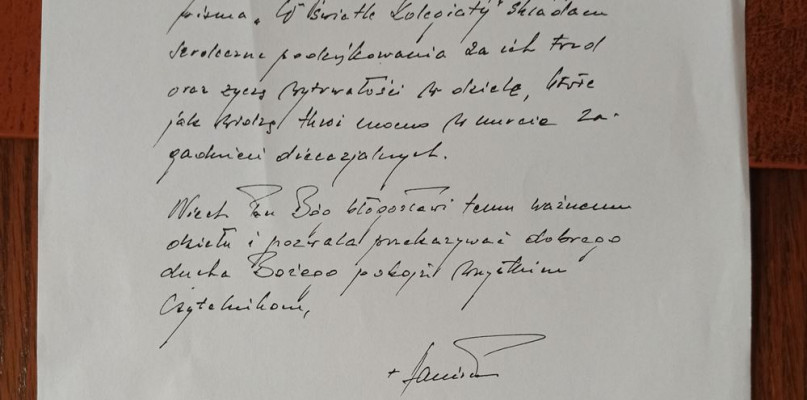 pisma „W Świetle Kolegiaty" składam
serdeczne podziękowania za ich trud
oraz życzę wytrwałości w dziele, które
jak widzę tkwi mocno w nurcie za-
gadnień diecezjalnych.
Niech Pan Bóg błogosławi temu ważnemu
dziełu i pozwala przekazywać dobrego
ducha Bożego pokoju wszystkim
Czytelnikom,
+